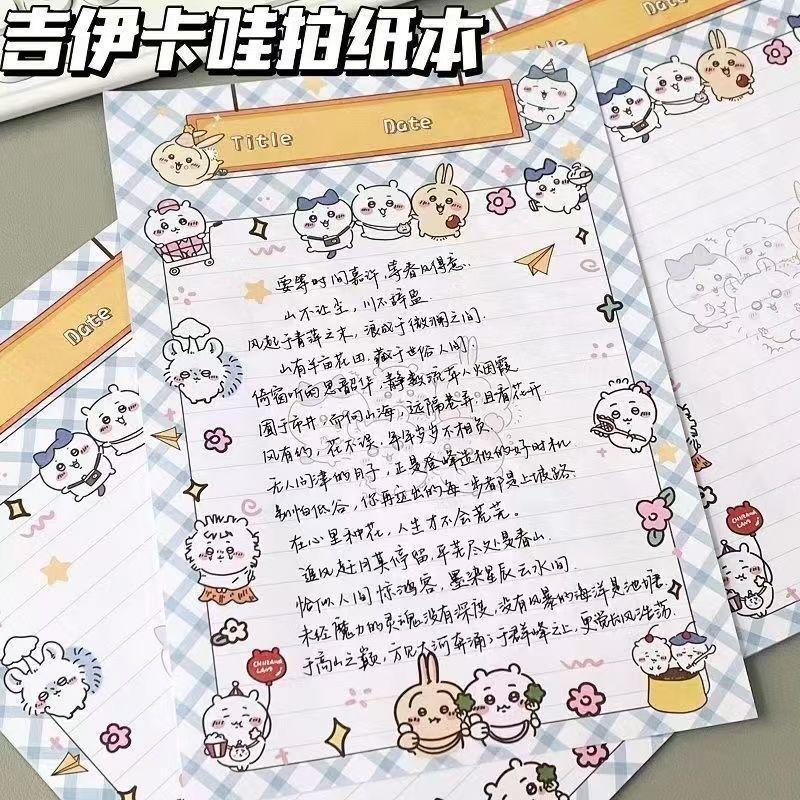 吉伊卡哇拍纸本
Title Date
要等时间嘉许,等春风得意.
山不让尘,川不辞盈.
风起于青萍之末,浪成于微澜之间.
山有半亩花田,藏于世俗人间.
倚窗听雨思韶华,静数流年人烟霞
囿于市井,而向山海,远隔巷弄,且看花开
风有约,花不误,年年岁岁不相负
无人问津的日子,正是登峰造极的好时机
别怕低谷,你再迈出的每一步都是上坡路.
在心里种花,人生才不会荒芜。
追风赶月莫停留,平芜尽处是春山.
恰似人间惊鸿客,墨染星辰云水间.
未经魔力的灵魂没有深度,没有风暴的海洋是池塘.
于高山之巅,方见大河奔涌;于群峰之上,更觉长风浩荡.
CHIIKAWA LAND
Date
CHIIKAWA LAND
Date